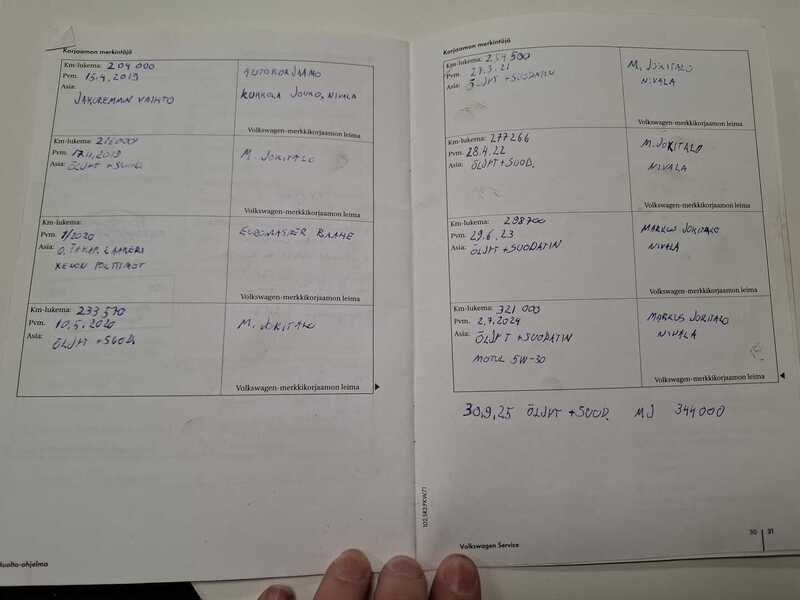 Korjaamon merkintöjä
Km-lukema: 204 000
Pvm. 15.4.2019
Asia:
JAKOREMMIN VAIHTO
AUTOKORJAAMO
KUKKOLA JOUKO, NIVALA
Volkswagen-merkkikorjaamon leima
Km-lukema: 216000
Pvm. 17.11.2019
Asia: ÖLJYT + SUOD.
M. JOKITALO
Volkswagen-merkkikorjaamon leima
Km-lukema:
Pvm. 1/2020
Asia: O. TAKAP. LAAKERI
XENON POLTTIMOT
EUROMASTER RAAHE
Volkswagen-merkkikorjaamon leima
Km-lukema: 233 570
Pvm. 10.5.2020
Asia: ÖLJYT + SUOD.
M. JOKITALO
Volkswagen-merkkikorjaamon leima
Huolto-ohjelma
Korjaamon merkintöjä
Km-lukema: 254 500
Pvm. 27.3.21
Asia: ÖLJYT + SUODATIN
M. JOKITALO
NIVALA
Volkswagen-merkkikorjaamon leima
Km-lukema: 277266
Pvm. 28.4.22
Asia: ÖLJYT + SUOD.
M. JOKITALO
NIVALA
Volkswagen-merkkikorjaamon leima
Km-lukema: 298700
Pvm. 29.6.23
Asia: ÖLJYT + SUODATIN
MARKUS JOKITALO
NIVALA
Volkswagen-merkkikorjaamon leima
Km-lukema: 321 000
Pvm. 2.7.2024
Asia: ÖLJYT + SUODATIN
MOTUL 5W-30
MARKUS JOKITALO
NIVALA
Volkswagen-merkkikorjaamon leima
30.9.25 ÖLJYT + SUOD. MJ 344000
Volkswagen Service
30 31